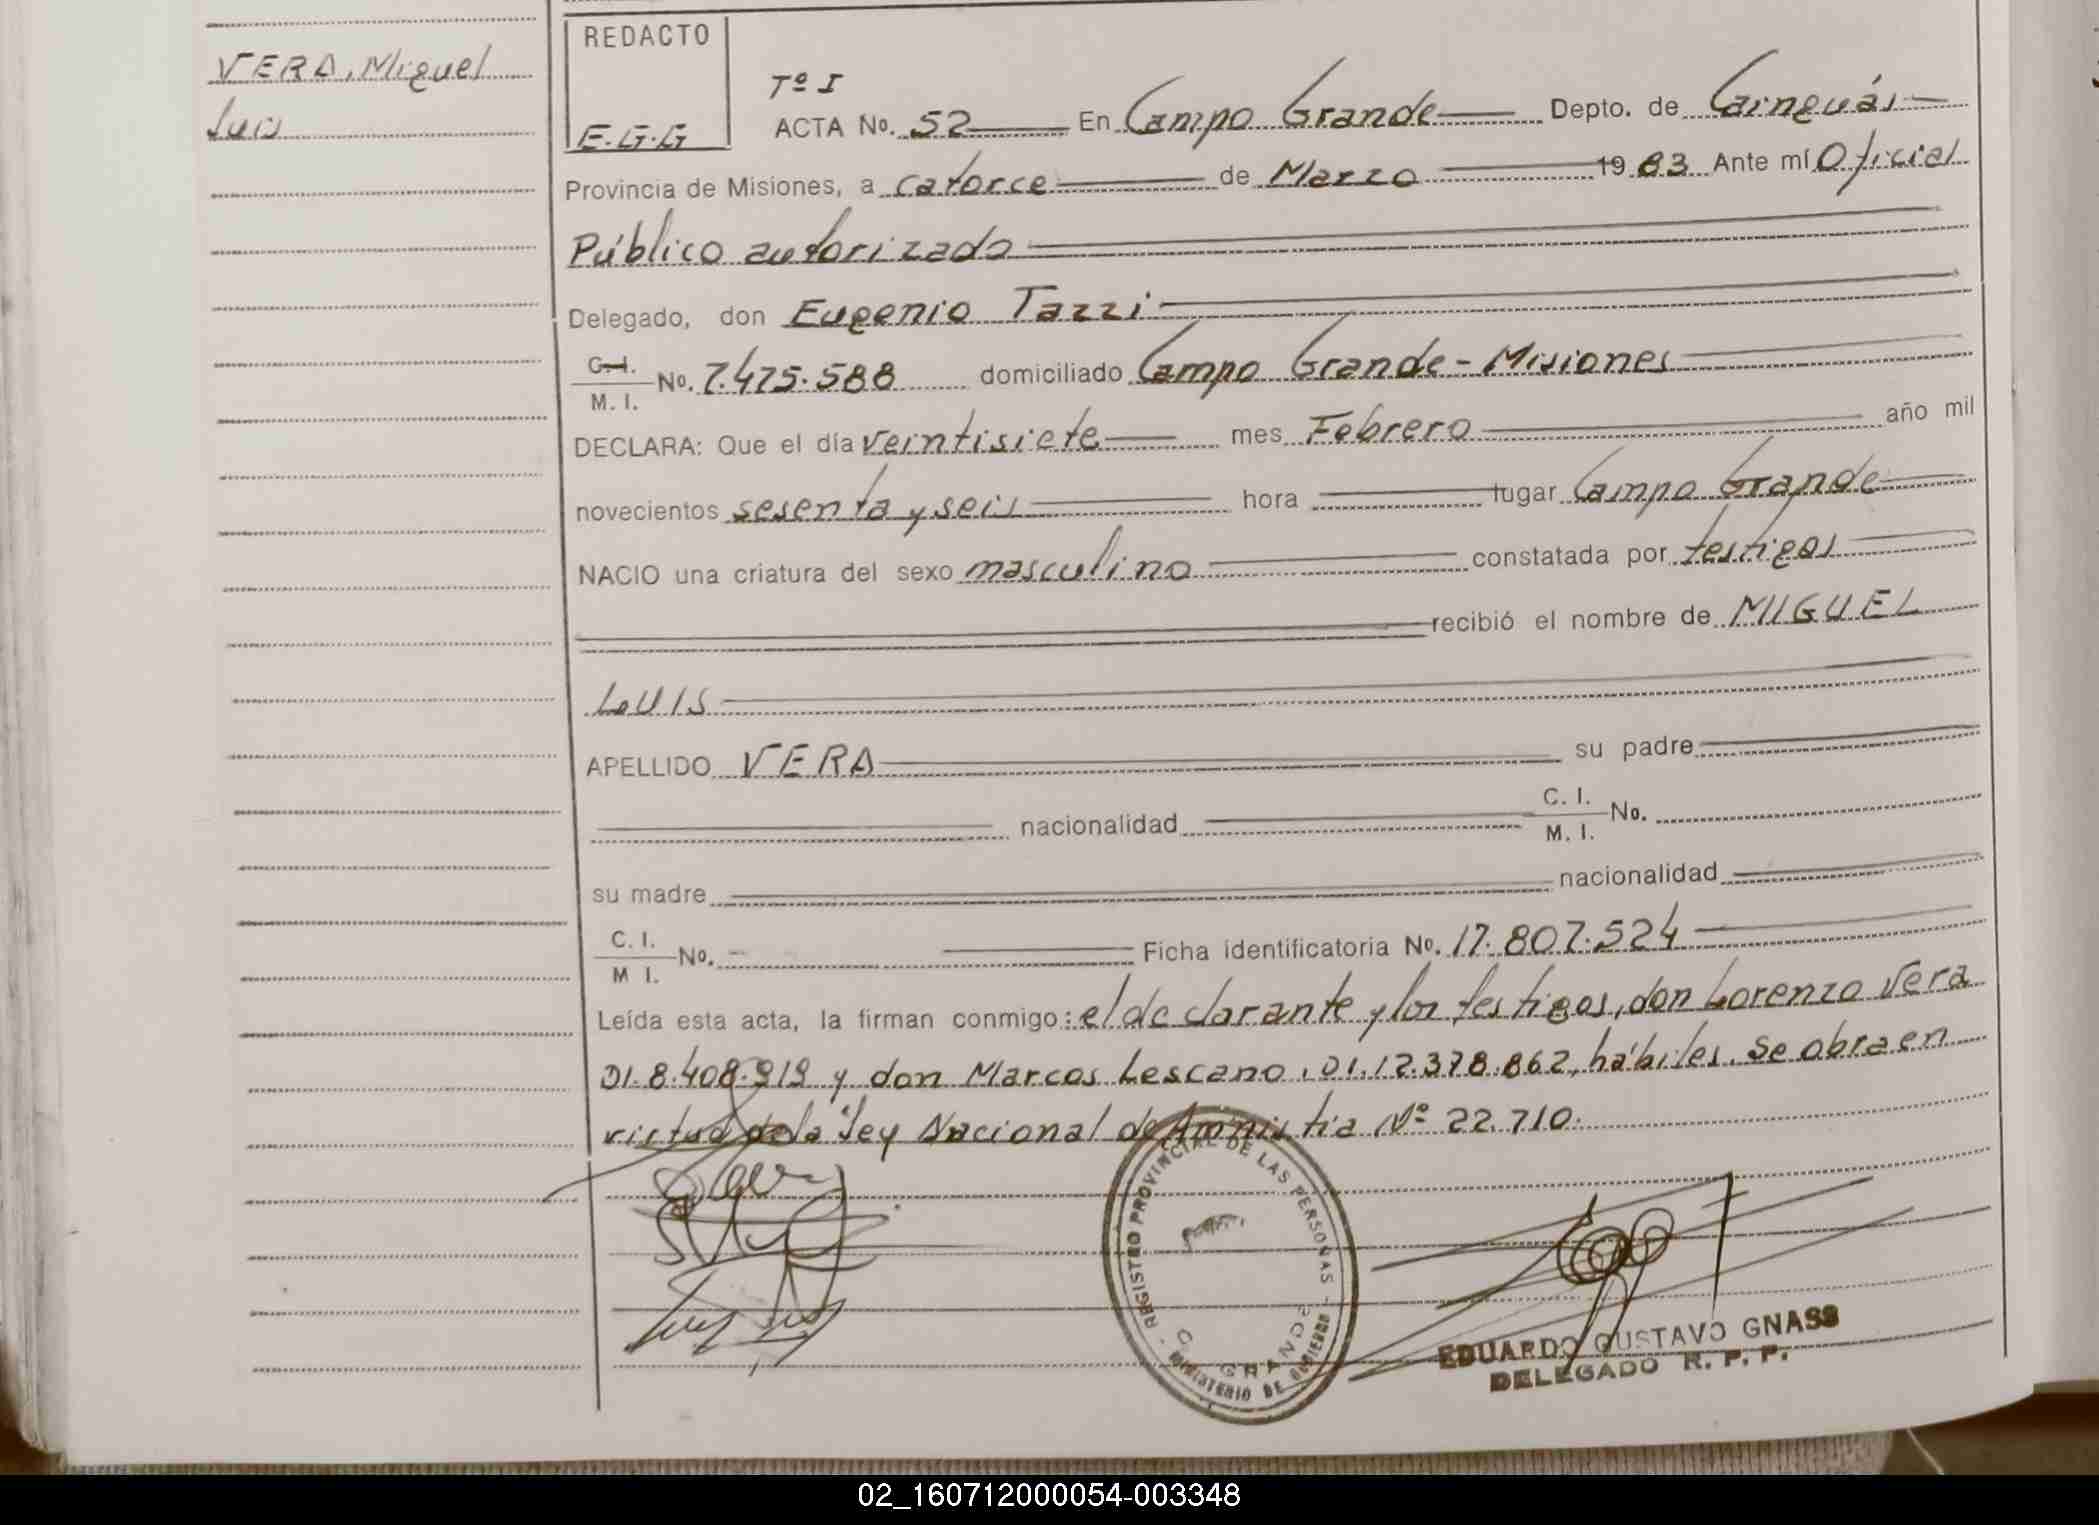 VERA, Miguel
Luis
REDACTO
E.G.G
Tº I
ACTA No. 52 En Campo Grande Depto. de Cainguás
Provincia de Misiones, a catorce de Marzo 1983 Ante mí Oficial
Público autorizado
Delegado, don Eugenio Tazzi
C.I.
M. I. No. 7.475.588 domiciliado Campo Grande - Misiones
DECLARA: Que el día veintisiete mes Febrero año mil
novecientos sesenta y seis hora lugar Campo Grande
NACIO una criatura del sexo masculino constatada por testigos
recibió el nombre de MIGUEL
LUIS
APELLIDO VERA su padre
nacionalidad C. I.
M. I. No.
su madre nacionalidad
C. I.
M I. No. Ficha identificatoria No. 17.807.524
Leída esta acta, la firman conmigo: el declarante y los testigos, don Lorenzo Vera
DI. 8.408.919 y don Marcos Lescano, DI. 12.378.862, hábiles. Se obra en
virtud de la ley Nacional de Amnistia Nº 22.710.
REGISTRO PROVINCIAL DE LAS PERSONAS
GRANDE
MINISTERIO DE GOBIERNO
EDUARDO GUSTAVO GNASS
DELEGADO R. P. P.
02_160712000054-003348